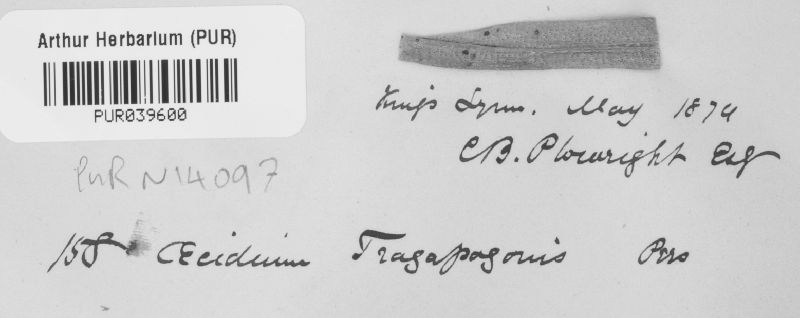 Arthur Herbarium (PUR)
PUR039600
King's Lynn. May 1879
C.B. Plowright Esq
PUR N14097
158 Œcidium Tragapogonis Pers